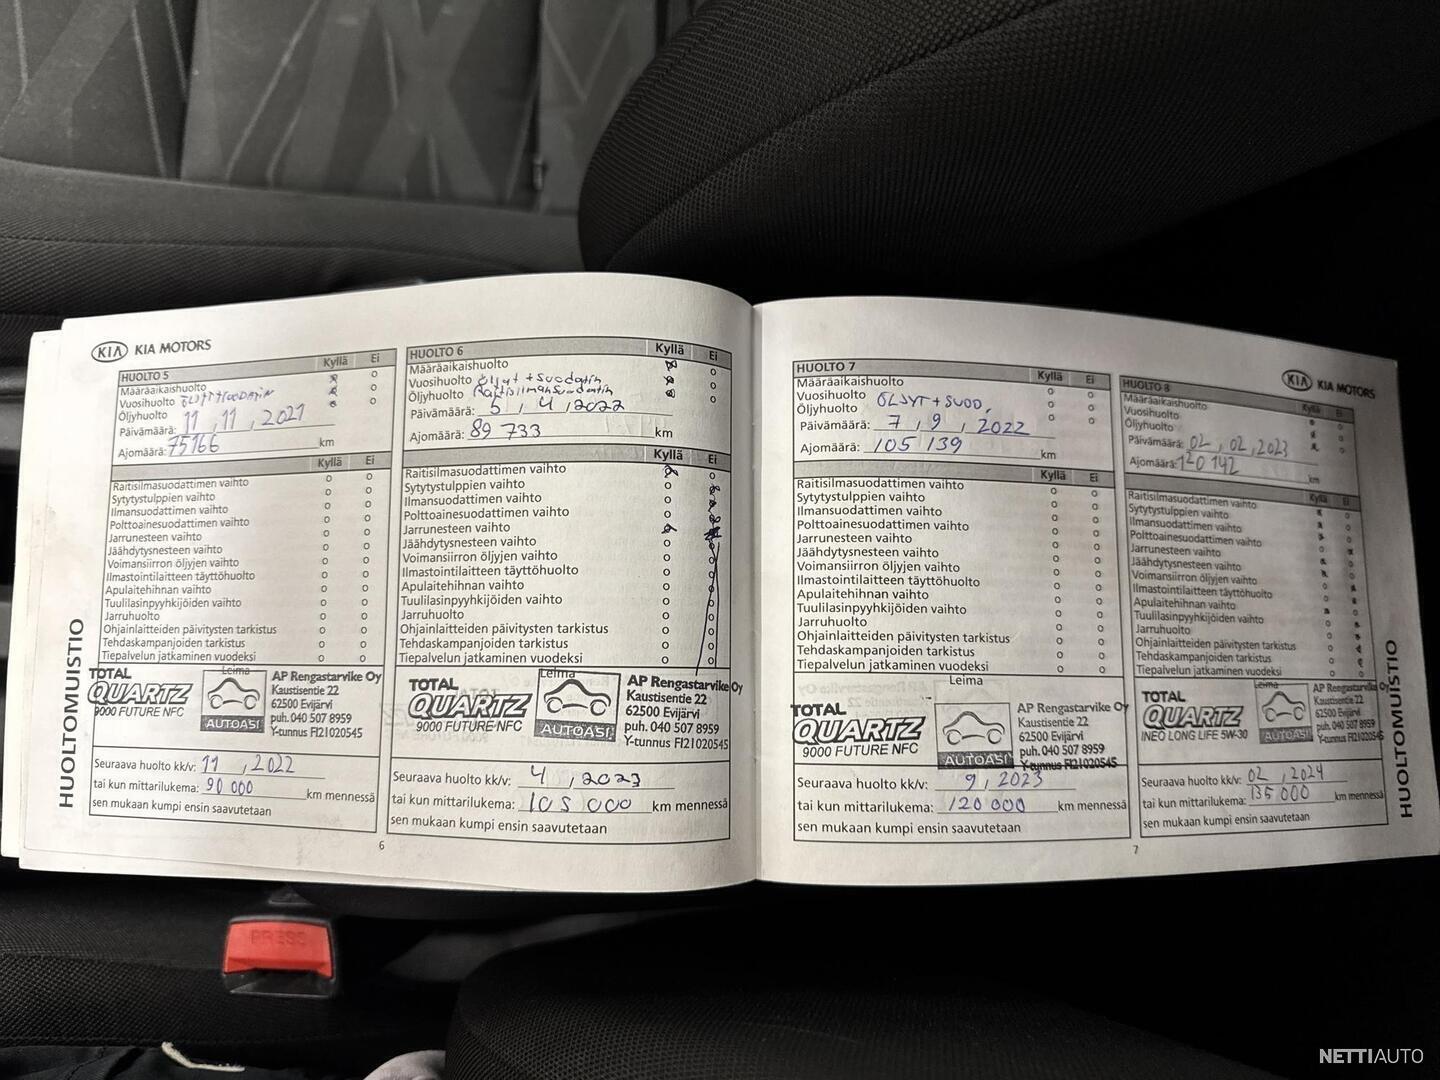 KIA KIA MOTORS
HUOLTO 5 Kyllä Ei
Määräaikaishuolto o
Vuosihuolto o
Öljyhuolto o
Päivämäärä: 11, 11, 2021
Ajomäärä: 75166 km
Kyllä Ei
Raitisilmasuodattimen vaihto o o
Sytytystulppien vaihto o o
Ilmansuodattimen vaihto o o
Polttoainesuodattimen vaihto o o
Jarrunesteen vaihto o o
Jäähdytysnesteen vaihto o o
Voimansiirron öljyjen vaihto o o
Ilmastointilaitteen täyttöhuolto o o
Apulaitehihnan vaihto o o
Tuulilasinpyyhkijöiden vaihto o o
Jarruhuolto o o
Ohjainlaitteiden päivitysten tarkistus o o
Tehdaskampanjoiden tarkistus o o
Tiepalvelun jatkaminen vuodeksi o o
Leima
TOTAL
QUARTZ
9000 FUTURE NFC
AUTOASI
AP Rengastarvike Oy
Kaustisentie 22
62500 Evijärvi
puh. 040 507 8959
Y-tunnus FI21020545
Seuraava huolto kk/v: 11, 2022
tai kun mittarilukema: 90 000 km mennessä
sen mukaan kumpi ensin saavutetaan
HUOLTOMUISTIO
HUOLTO 6 Kyllä Ei
Määräaikaishuolto o
Vuosihuolto Öljyt + suodatin o
Öljyhuolto Raitisilmansuodatin o
Päivämäärä: 5, 4, 2022
Ajomäärä: 89 733 km
Kyllä Ei
Raitisilmasuodattimen vaihto
Sytytystulppien vaihto o
Ilmansuodattimen vaihto o
Polttoainesuodattimen vaihto o
Jarrunesteen vaihto
Jäähdytysnesteen vaihto o
Voimansiirron öljyjen vaihto o o
Ilmastointilaitteen täyttöhuolto o o
Apulaitehihnan vaihto o o
Tuulilasinpyyhkijöiden vaihto o o
Jarruhuolto o o
Ohjainlaitteiden päivitysten tarkistus o o
Tehdaskampanjoiden tarkistus o o
Tiepalvelun jatkaminen vuodeksi o o
Leima
TOTAL
QUARTZ
9000 FUTURE NFC
AUTOASI
AP Rengastarvike Oy
Kaustisentie 22
62500 Evijärvi
puh. 040 507 8959
Y-tunnus FI21020545
Seuraava huolto kk/v: 4, 2023
tai kun mittarilukema: 105 000 km mennessä
sen mukaan kumpi ensin saavutetaan
6
HUOLTO 7 Kyllä Ei
Määräaikaishuolto o o
Vuosihuolto o o
Öljyhuolto ÖLJYT + SUOD. o o
Päivämäärä: 7, 9, 2022
Ajomäärä: 105 139 km
Kyllä Ei
Raitisilmasuodattimen vaihto o o
Sytytystulppien vaihto o o
Ilmansuodattimen vaihto o o
Polttoainesuodattimen vaihto o o
Jarrunesteen vaihto o o
Jäähdytysnesteen vaihto o o
Voimansiirron öljyjen vaihto o o
Ilmastointilaitteen täyttöhuolto o o
Apulaitehihnan vaihto o o
Tuulilasinpyyhkijöiden vaihto o o
Jarruhuolto o o
Ohjainlaitteiden päivitysten tarkistus o o
Tehdaskampanjoiden tarkistus o o
Tiepalvelun jatkaminen vuodeksi o o
Leima
TOTAL
QUARTZ
9000 FUTURE NFC
AUTOASI
AP Rengastarvike Oy
Kaustisentie 22
62500 Evijärvi
puh. 040 507 8959
Y-tunnus FI21020545
Seuraava huolto kk/v: 9, 2023
tai kun mittarilukema: 120 000 km mennessä
sen mukaan kumpi ensin saavutetaan
KIA KIA MOTORS
HUOLTO 8 Kyllä Ei
Määräaikaishuolto o
Vuosihuolto o
Öljyhuolto o
Päivämäärä: 02, 02, 2023
Ajomäärä: 120 142 km
Kyllä Ei
Raitisilmasuodattimen vaihto
Sytytystulppien vaihto
Ilmansuodattimen vaihto
Polttoainesuodattimen vaihto
Jarrunesteen vaihto
Jäähdytysnesteen vaihto
Voimansiirron öljyjen vaihto
Ilmastointilaitteen täyttöhuolto
Apulaitehihnan vaihto
Tuulilasinpyyhkijöiden vaihto
Jarruhuolto
Ohjainlaitteiden päivitysten tarkistus
Tehdaskampanjoiden tarkistus
Tiepalvelun jatkaminen vuodeksi
Leima
TOTAL
QUARTZ
INEO LONG LIFE 5W-30
AUTOASI
AP Rengastarvike Oy
Kaustisentie 22
62500 Evijärvi
puh. 040 507 8959
Y-tunnus FI21020545
Seuraava huolto kk/v: 02, 2024
tai kun mittarilukema: 135 000 km mennessä
sen mukaan kumpi ensin saavutetaan
7
HUOLTOMUISTIO
PRESS
NETTIAUTO